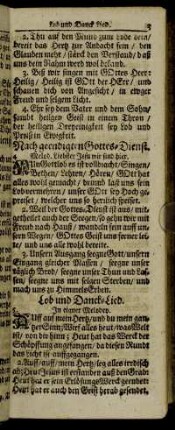 Lob und Danck Lied. 5
2. Thu auf den Mund zum Lobe dein/
bereit das Hertz zur Andacht fein / den
Glauben mehr / stärck den Verstand / daß
uns dein Nahm werd wol bekand.
3. Biß wir singen mit GOttes Heer:
Heilig / Heilig ist GOtt der HErr / und
schauen dich von Angesicht / in ewger
Freud und selgem Licht.
4. Ehr sey dem Vater und dem Sohn/
samt heilgen Geist in einem Thron /
der heiligen Dreyeinigkeit sey Lob und
Preiß in Ewigkeit.
Nach geendigten Gottes-Dienst.
Melod. Liebster Jesu wir sind hier.
NUn Gottlob es ist vollbracht/ Singen/
Bethen/ Lehren/ Hören/ GOtt hat
alles wohl gemacht / drumb last uns sein
Lob vermehren/ unser GOtt sey Hoch ge-
preiset / welcher uns so herrlich speiset.
2. Weil der Gottes-Dienst ist aus / mit-
getheilet auch der Seegen/ so gehn wir mit
Freud nach Hauß / wandeln fein auff un-
sern Wegen/ GOttes Geist uns ferner lei-
te/ und uns alle wohl bereite.
3. Unsern Ausgang segne Gott/ unsern
Eingang gleicher Massen / segne unser
täglich Brod/ seegne unser Thun und Las-
sen/ segne uns mit selgen Sterben/ und
mach uns zu Himmels Erben.
Lob und Danck-Lied.
In eigner Melodey.
AUf auf mein Hertz/ und du mein gan-
tzer Sinn/ Wirf alles heut/ was Welt
ist/ von dir hinn; Heut hat das Werck der
Schöpffung angefangen/ da dieses Rund
dan nicht ist auffgegangen.
2. Auff/ auff/ mein Hertz/ leg alles irrdisch
ab; Heut JEsus ist erstanden aus den Grab:
Heut hat er sein Erlösungs Werck geendet
Heut hat er auch den Geist herab gesendet,